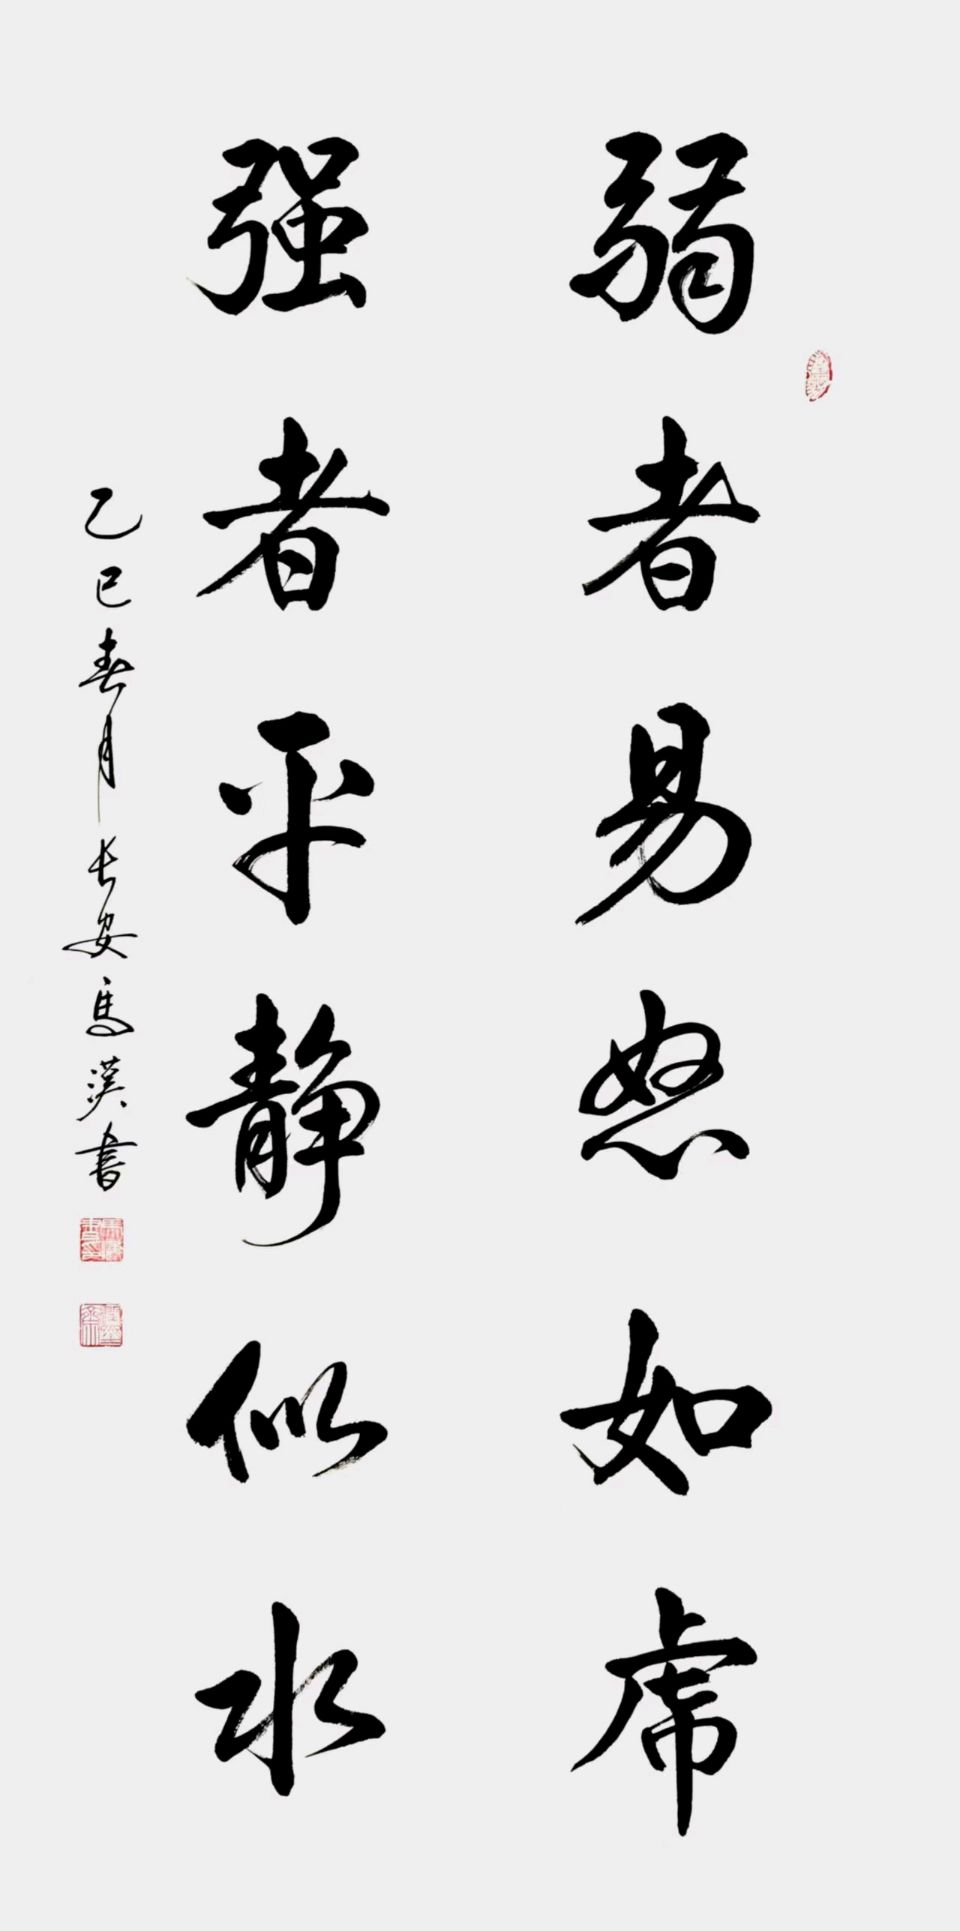 弱者易怒如虎
强者平静似水
乙巳春月长安马汉书